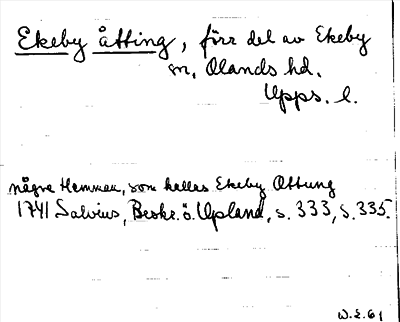 Ekeby åtting, förr del av Ekeby
sn, Olands hd.
Upps. l.
någre Hemman, som kallas Ekeby Attung
1741 Salvius, Beskr. ö. Upland, s. 333, s. 335.
W.E. 61